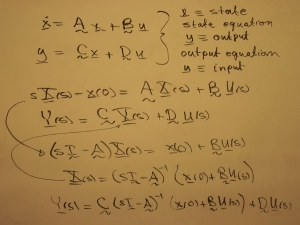 ẋ = A x + B u
x = state
state equation
y = C x + D u
y = output
output equation
u = input
sX(s) - x(0) = A X(s) + B U(s)
Y(s) = C X(s) + D U(s)
(sI - A) X(s) = x(0) + B U(s)
X(s) = (sI - A)⁻¹ (x(0) + B U(s))
Y(s) = C (sI - A)⁻¹ (x(0) + B U(s)) + D U(s)